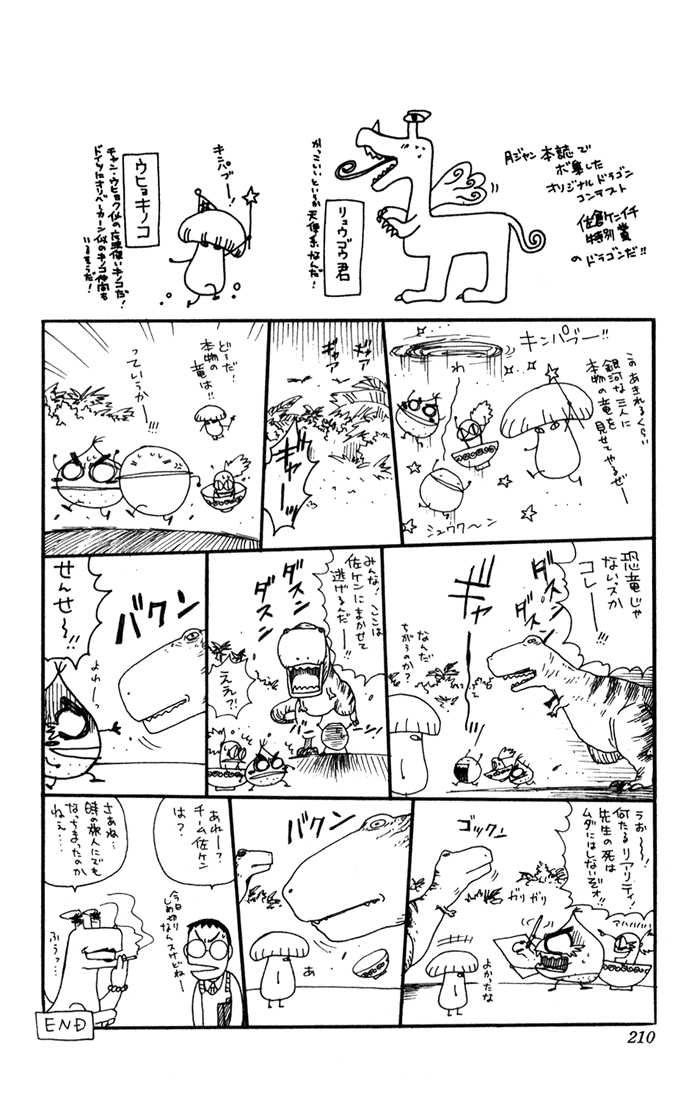 月ジャン本誌で
ボ集した
オリジナルドラゴン
コンテスト
佐倉ケンイチ
特別賞
のドラゴンだ!!
リュウゴウ君
かっこいいというか
天使系なんだ!
キンパブー!
ウヒョキノコ
チャン・ウヒョク似の魔法使いキノコだ!
ドイツにオリバーカーン似のキノコ仲間も
いるそうだ!
キンパブー!!
このあきれるくらい
銀河な三人に
本物の竜を
見せてやるぜー
わ
シュウウ〜ン
ギャア
ギャア
ギャーッ
どーだ!
本物の
竜は!!
っていうか
ー!!
恐竜じゃ
ないスか
コレー!!
ダスン
ギャー
なんだ
ちがうのか?
ダスン
ダスン
みんな!ここは
佐ケンにまかせて
逃げるだー!!
ええ?!
バクン
せんせ〜!!
よれーっ
うお〜〜!
何たるリアリティ!
先生の死は
ムダにはしないぞォ!!
アハハハハ
ガリガリ
ゴックン
よかったな
バクン
あ
あれー?
チーム佐ケン
は?
今日〆切り
しめきりなんスけどねー
さあね…
時の旅人にでも
なっちまったのか
ねえ…
ふうっ…
END
210